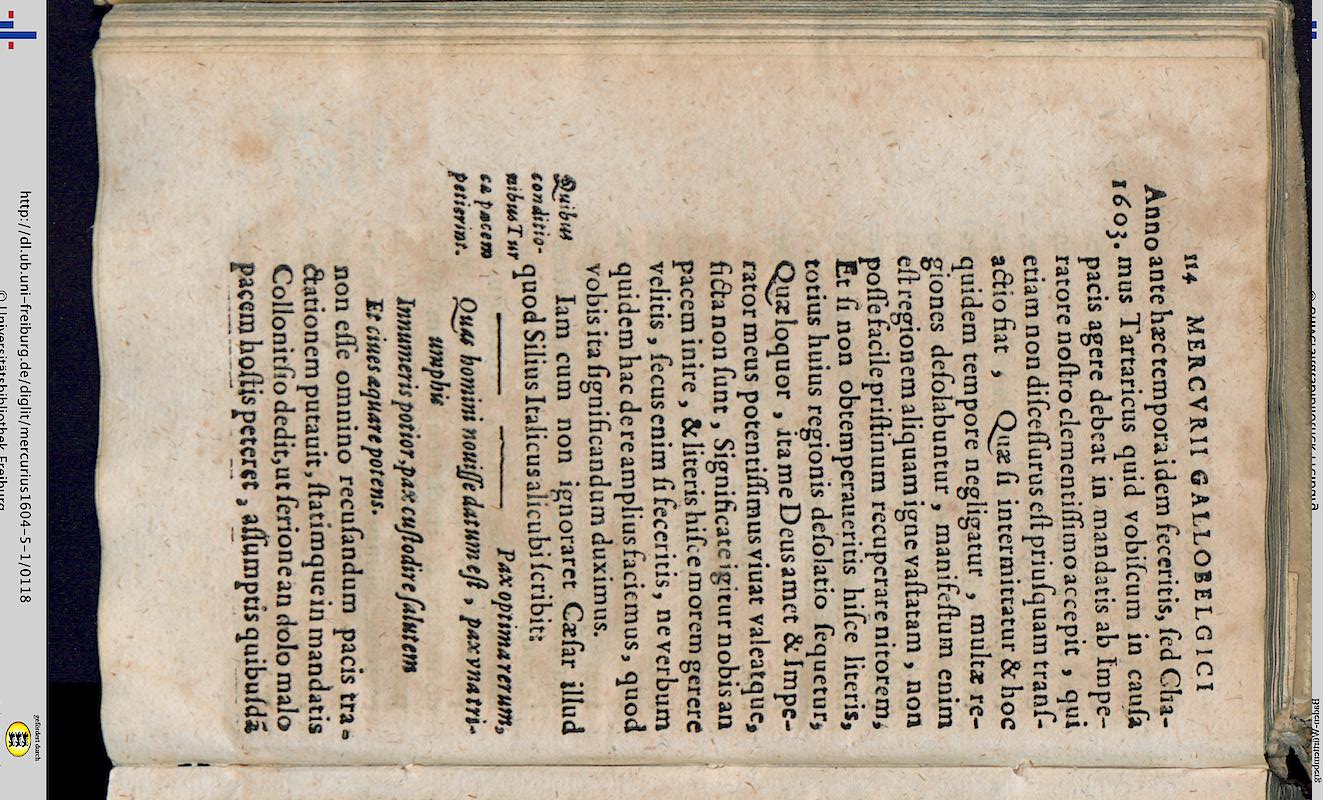 114 MERCVRII GALLOBELGICI
Anno
1603.
ante hæc tempora idem feceritis, ſed Cha-
mus Tartaricus quid vobiſcum in cauſa
pacis agere debeat in mandatis ab Impe-
ratore noſtro clementiſſimo accepit, qui
etiam non diſceſſurus eſt priuſquam tranſ-
actio fiat, Quæ ſi intermittatur & hoc
quidem tempore negligatur, multæ re-
giones deſolabuntur, manifeſtum enim
eſt regionem aliquam igne vaſtatam, non
poſſe facile priſtinum recuperare nitorem,
Et ſi non obtemperaueritis hiſce literis,
totius huius regionis deſolatio ſequetur,
Quæ loquor, ita me Deus amet & Impe-
rator meus potentiſſimus viuat valeatque,
ficta non ſunt, Significate igitur nobis an
pacem inire, & literis hiſce morem gerere
velitis, ſecus enim ſi feceritis, ne verbum
quidem hac de re amplius faciemus, quod
vobis ita ſignificandum duximus.
Quibus
conditio-
nibus Tur
ca pacem
petierint.
Iam cum non ignoraret Cæſar illud
quod Silius Italicus alicubi ſcribit:
Pax optima rerum,
Quas homini nouiſſe datum eſt, pax vna tri-
umphis
Innumeris potior, pax cuſtodire ſalutem
Et ciues æquare potens.
non eſſe omnino recuſandum pacis tra-
ctationem putauit, ſtatimque in mandatis
Collonitſio dedit, ut ſerione an dolo malo
pacem hoſtis peteret, aſſumptis quibuſdã
http://dl.ub.uni-freiburg.de/diglit/mercurius1604-5-1/0118
© Universitätsbibliothek Freiburg
gefördert durch